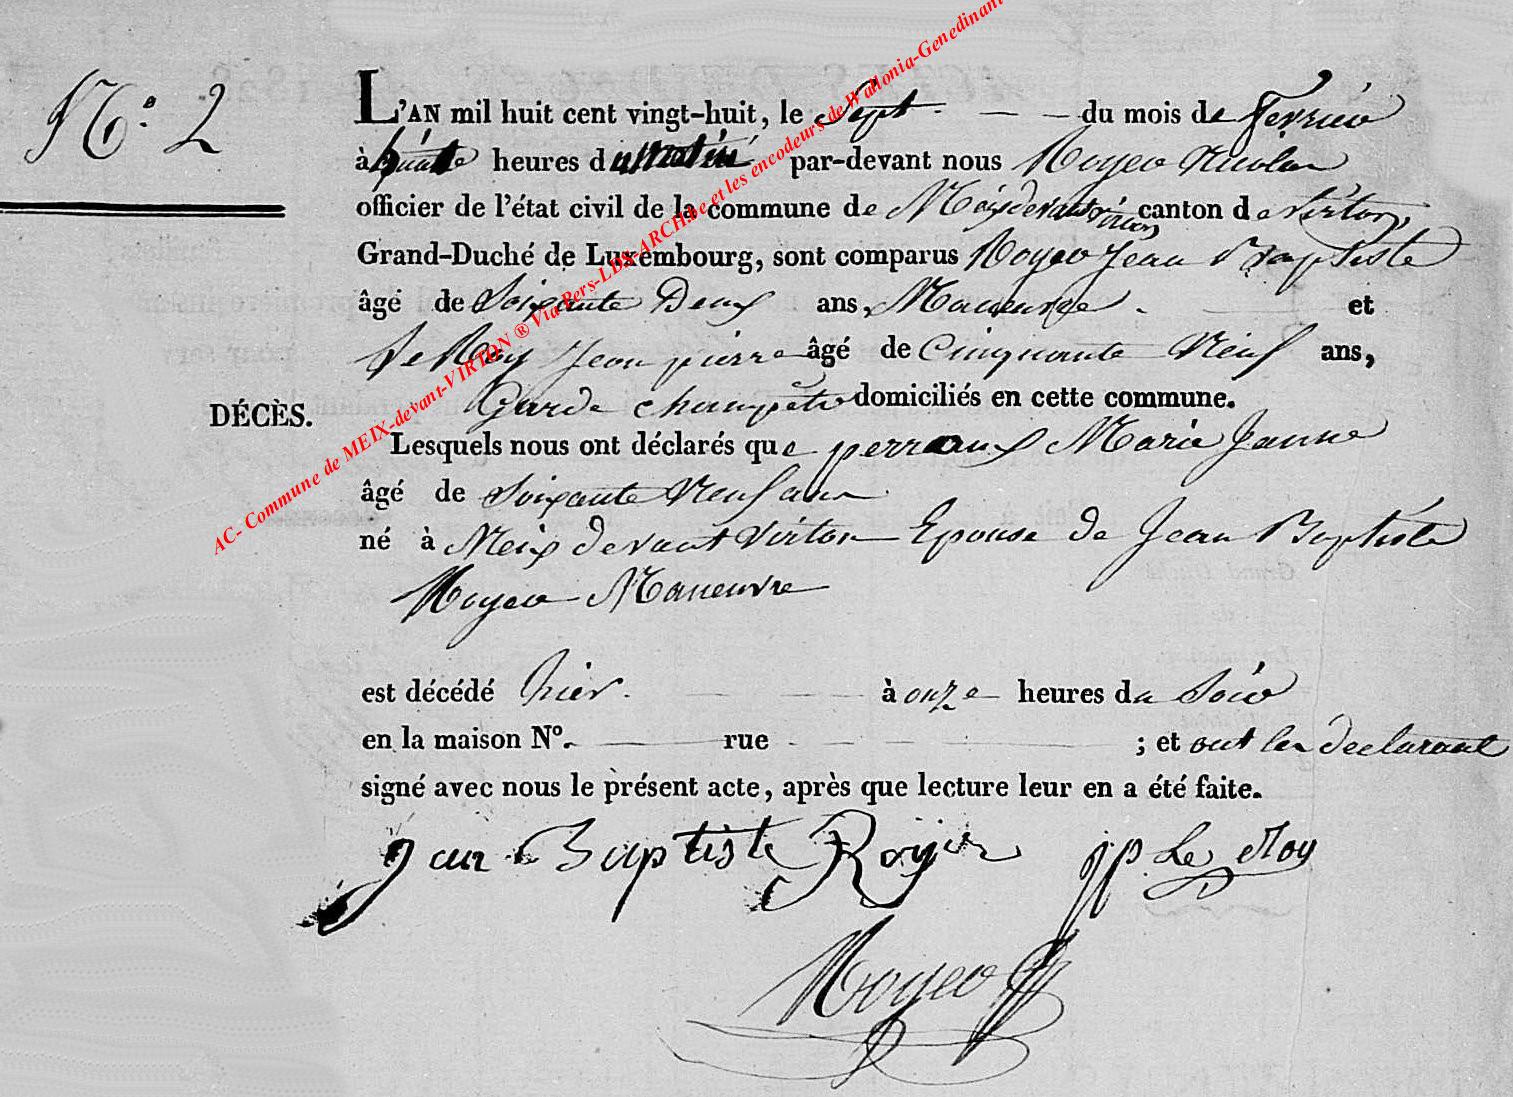 N.° 2
L'AN mil huit cent vingt-huit, le Sept - — - du mois de fevrier
à heures du par-devant nous Royer Nicolas
officier de l'état civil de la commune de Meix devant virton canton de virton,
Grand-Duché de Luxembourg, sont comparus Royer Jean Baptiste
âgé de Soixante Deux ans, Maneuvre - et
Le Roy Jean pierre âgé de Cinquante Neuf ans,
DÉCÈS.
Garde champêtre domiciliés en cette commune.
Lesquels nous ont déclarés que perraux Marie Janne
âgé de Soixante Neuf ans
né à Meix devant virton Epouse de Jean Baptiste
Royer Maneuvre
est décédé hier. - — à onze heures du Soir
en la maison N°. — rue - - - — ; et ont les declarant
signé avec nous le présent acte, après que lecture leur en a été faite.
Jean Baptiste Royer jp Le Roy
Royer
AC- Commune de MEIX-devant-VIRTON ® Via Pers-LDS-ARCH.be et les encodeurs de Wallonia-Genedinant